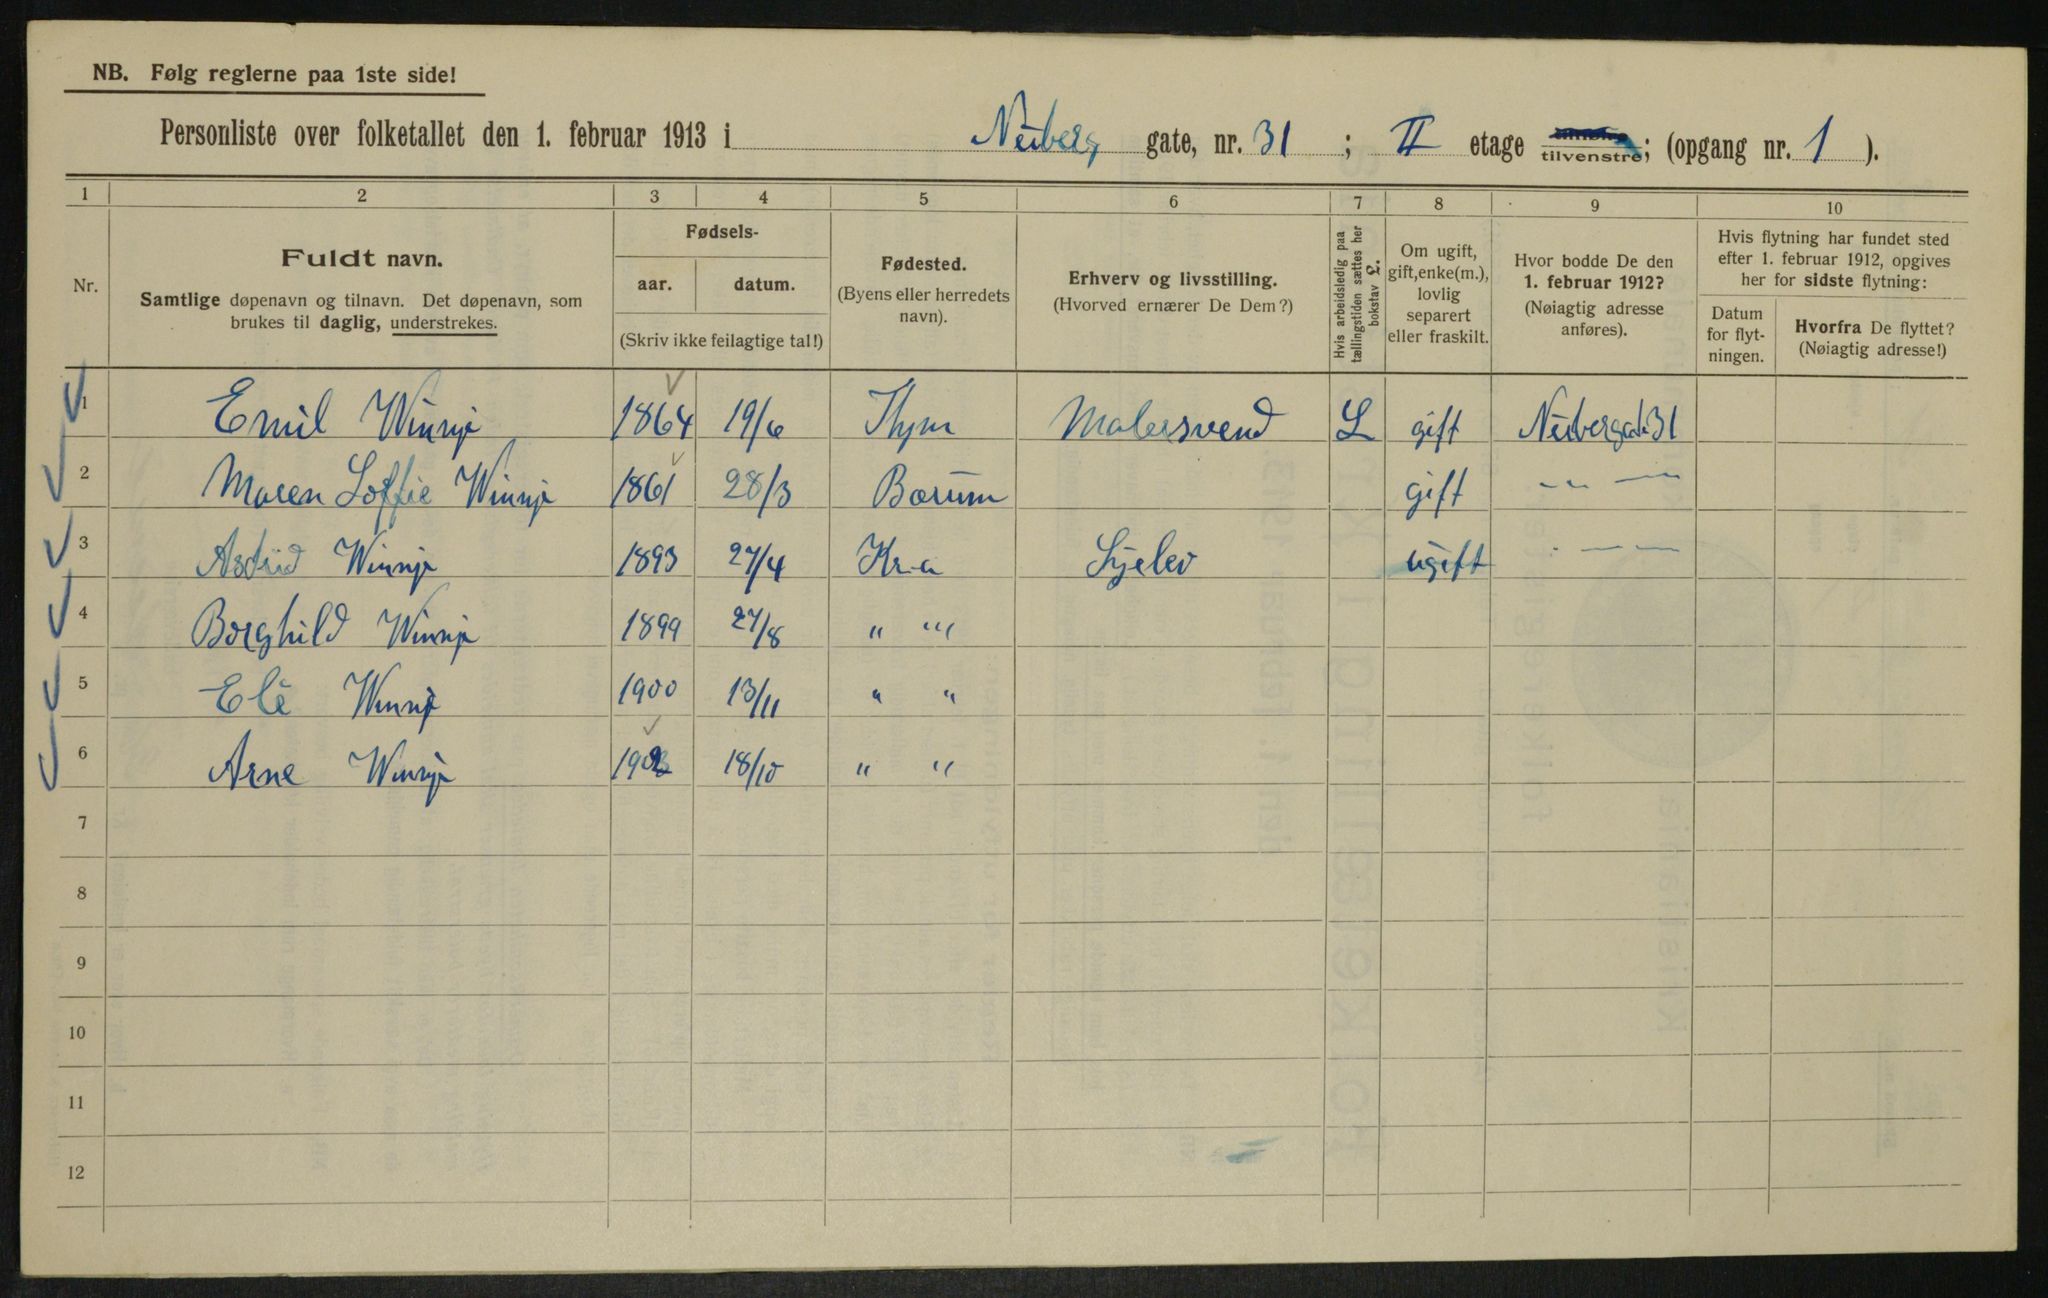 NB. Følg reglerne paa 1ste side!
Personliste over folketallet den 1. februar 1913 i Neuberg gate, nr. 31 ; II etage tilvenstre; (opgang nr. 1 ).
1 2 3 4 5 6 7 8 9 10
Nr.
Fuldt navn.
Samtlige døpenavn og tilnavn. Det døpenavn, som
brukes til daglig, understrekes.
Fødsels-
aar. datum.
(Skriv ikke feilagtige tal!)
Fødested.
(Byens eller herredets
navn).
Erhverv og livsstilling.
(Hvorved ernærer De Dem?)
Hvis arbeidsledig paa
tællingstiden sættes her
bokstav L.
Om ugift,
gift, enke(m.),
lovlig
separert
eller fraskilt.
Hvor bodde De den
1. februar 1912?
(Nøiagtig adresse
anføres).
Hvis flytning har fundet sted
efter 1. februar 1912, opgives
her for sidste flytning:
Datum
for flyt-
ningen.
Hvorfra De flyttet?
(Nøiagtig adresse!)
1 Emil Winnje 1864 19/6 Malersvend L gift 31
2 Maren Soffie Winnje 1861 28/3 Bærum gift " " —
3 Astrid Winnje 1893 27/4 Kr.a ugift — —
4 Borghild Winnje 1899 27/8 " " "
5 Winnje 1900 13/11 " "
6 Arne Winnje 18/10 " "
7
8
9
10
11
12